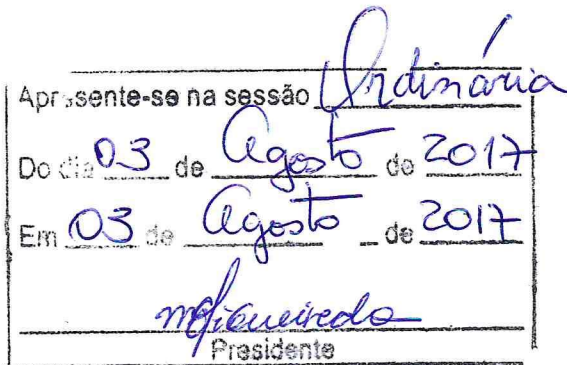 Apresente-se na sessão Ordinária
Do dia 03 de Agosto de 2017
Em 03 de Agosto de 2017
Presidente